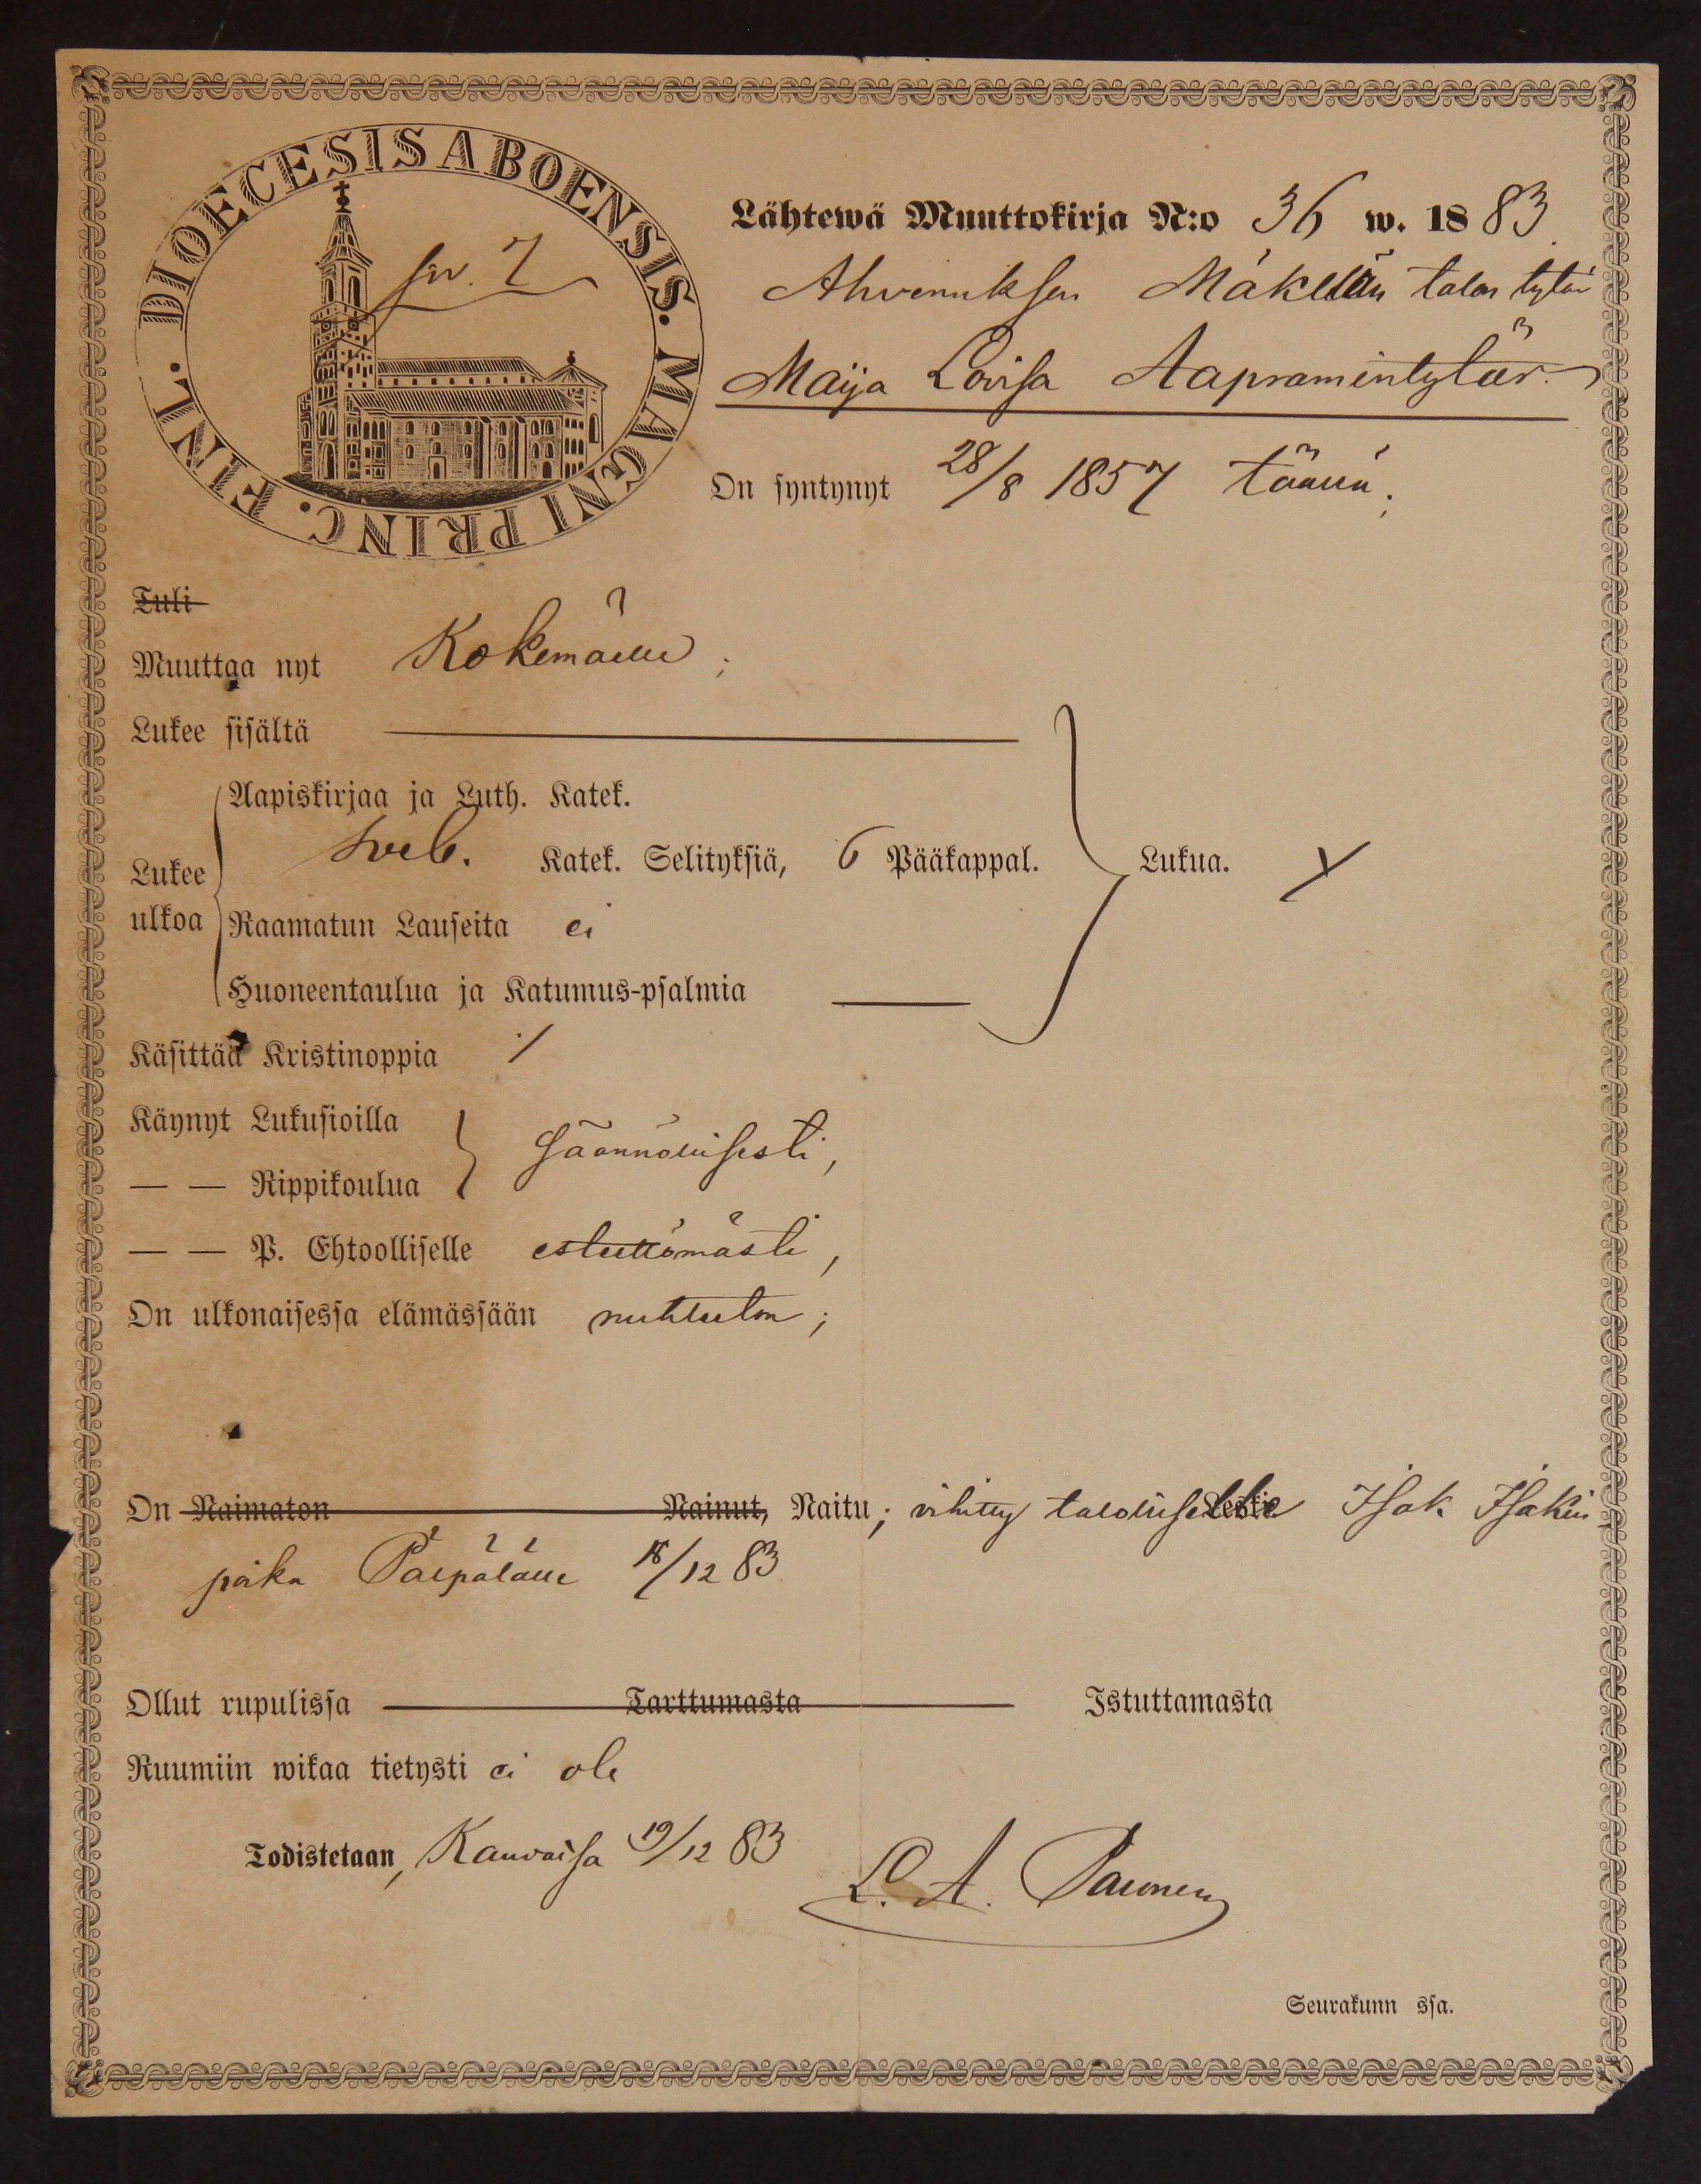 DIOECESIS ABOENSIS. MAGNI PRINC. FINL.
siv. 7
Lähtewä Muuttokirja N:o 36 w. 1883
Ahvenuksen Mäkelän talon tytär
Maija Lovisa Aapramintytär
On syntynyt 28/8 1857 täällä;
Tuli
Muuttaa nyt Kokemäelle;
Lukee sisältä
Aapiskirjaa ja Luth. Katek.
Lukee ulkoa
Sveb. Katek. Selityksiä, 6 Pääkappal. Lukua.
Raamatun Lauseita ei
Huoneentaulua ja Katumus-psalmia
Käsittää Kristinoppia
Käynyt Lukusioilla
säännöllisesti,
— — Rippikoulua
— — P. Ehtoolliselle esteettömästi,
On ulkonaisessa elämässään nuhteeton;
On Naimaton Nainut, Naitu; vihitty taloliselle Leski Isak Isakin
poika Paepälälle 18/12 83
Ollut rupulissa Tarttumasta Istuttamasta
Ruumiin wikaa tietysti ei ole
Todistetaan, Kauvaisa 19/12 83
L. A. Paunen
Seurakunn ssa.